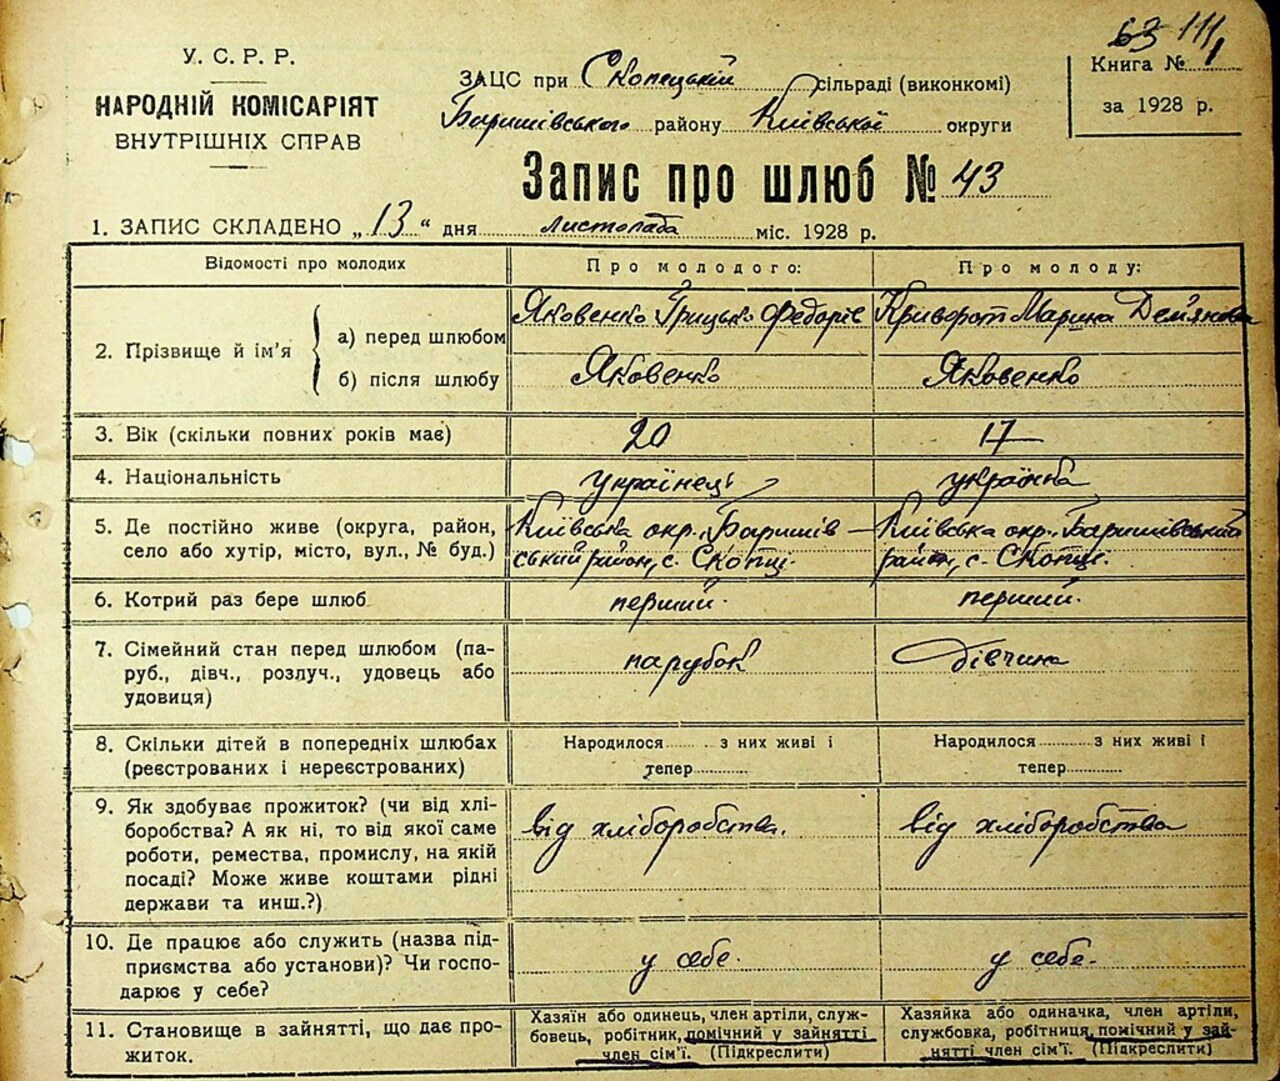 63 111
У. С. Р. Р.
НАРОДНІЙ КОМІСАРІЯТ
ВНУТРІШНІХ СПРАВ
ЗАЦС при Скопецькій сільраді (виконкомі)
Баришівського району Київської округи
Книга № 1
за 1928 р.
Запис про шлюб № 43
1. ЗАПИС СКЛАДЕНО „13“ дня листопада міс. 1928 р.
Відомості про молодих
Про молодого:
Про молоду:
2. Прізвище й ім'я
а) перед шлюбом
Яковенко Грицько Федорів
Криворот Марина Дем'янова
б) після шлюбу
Яковенко
Яковенко
3. Вік (скільки повних років має)
20
17
4. Національність
українець
українка
5. Де постійно живе (округа, район,
село або хутір, місто, вул., № буд.)
Київська окр., Баришів-
ський район, с. Скопці.
Київська окр., Баришівський
район, с. Скопці.
6. Котрий раз бере шлюб
перший.
перший.
7. Сімейний стан перед шлюбом (па-
руб., дівч., розлуч., удовець або
удовиця)
парубок
дівчина
8. Скільки дітей в попередніх шлюбах
(реєстрованих і нереєстрованих)
Народилося ........ з них живі і
тепер............
Народилося ........... з них живі і
тепер............
9. Як здобуває прожиток? (чи від хлі-
боробства? А як ні, то від якої саме
роботи, ремества, промислу, на якій
посаді? Може живе коштами рідні
держави та инш.?)
від хліборобства.
від хліборобства
10. Де працює або служить (назва під-
приємства або установи)? Чи госпо-
дарює у себе?
у себе.
у себе.
11. Становище в зайнятті, що дає про-
житок.
Хазяїн або одинець, член артіли, служ-
бовець, робітник, помічний у зайнятті
член сім'ї. (Підкреслити)
Хазяйка або одиначка, член артіли,
службовка, робітниця, помічний у зай-
нятті член сім'ї. (Підкреслити)